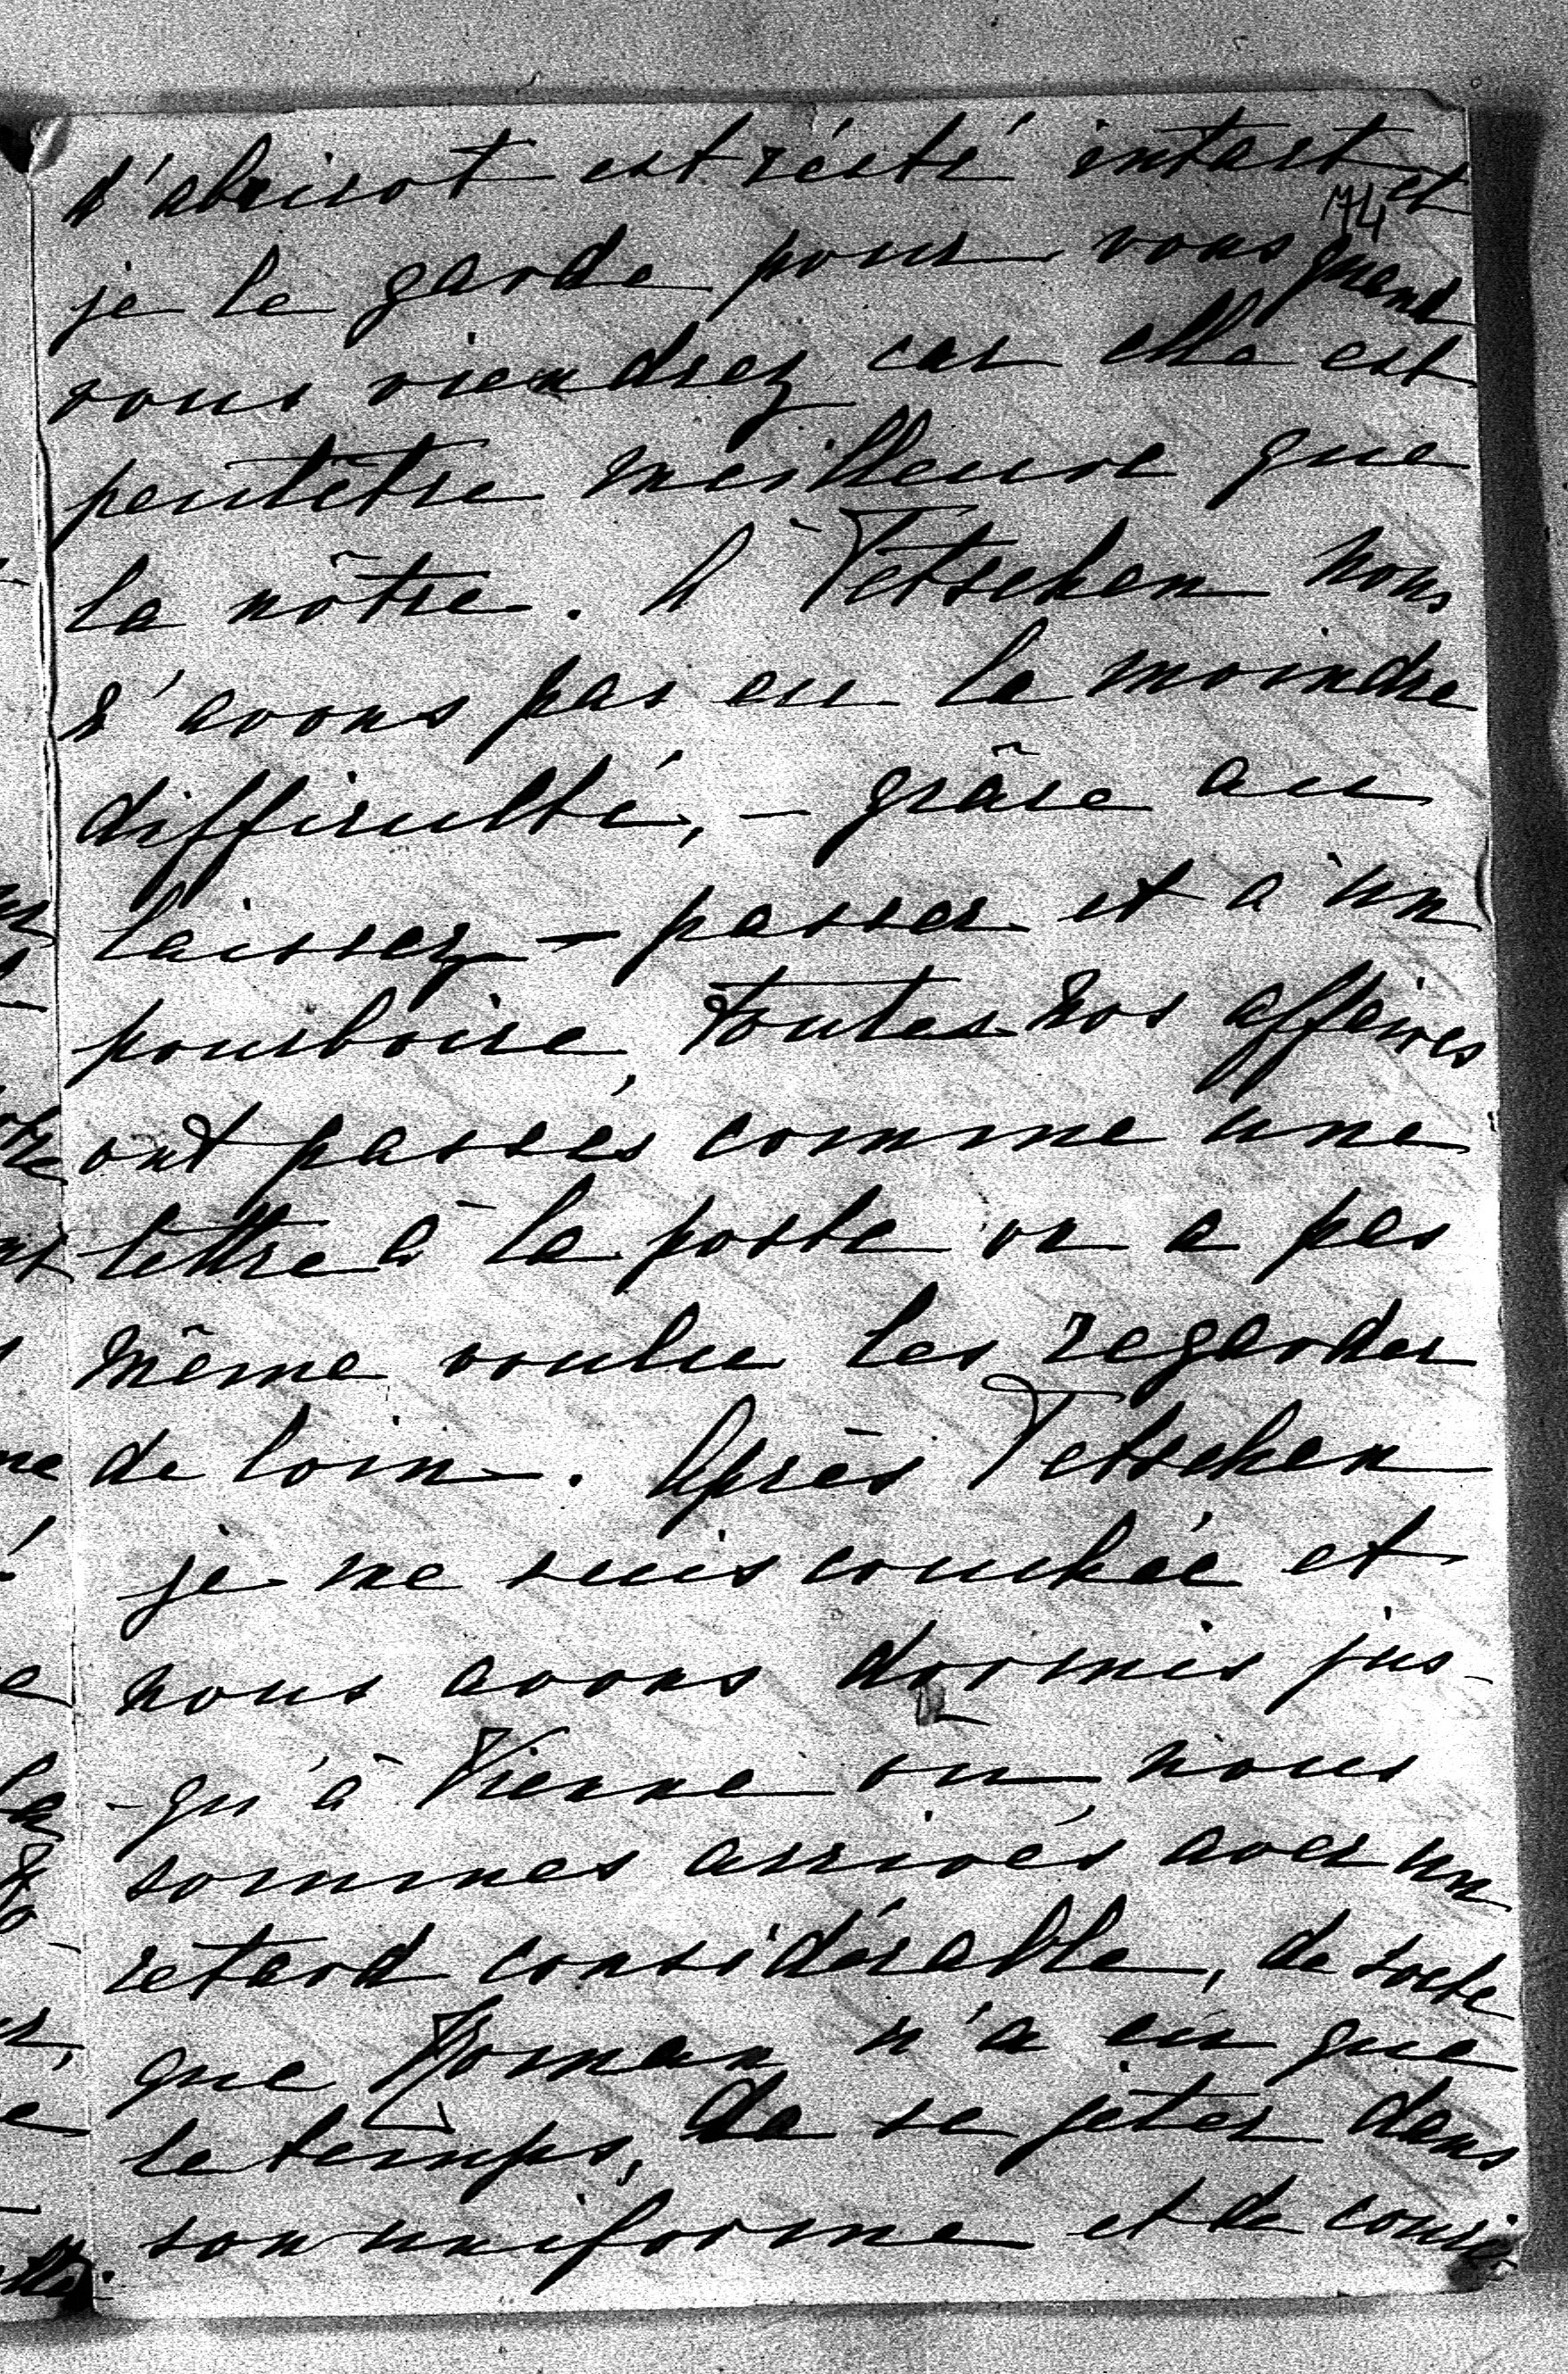 d'abricot est résté intact et
174
je le garde pour vous quand
vous viendrez car elle est
peutêtre meilleure que
la nôtre. A Tetschen nous
n'avons pas eu la moindre
difficulté, – grâce au
laissez – passer et à un
pourboire, toutes nos affaires
ont passés comme une
lettre à la poste on a pas
même voulu les regarder
de loin. Après Tetschen
je me suis couchée et
nous avons dormis jus-
-qu'à Vienne ou nous
sommes arrivés avec un
retard considérable, de sorte
que Roman n'a eu que
le temps, de se jeter dans
son uniforme et de courir